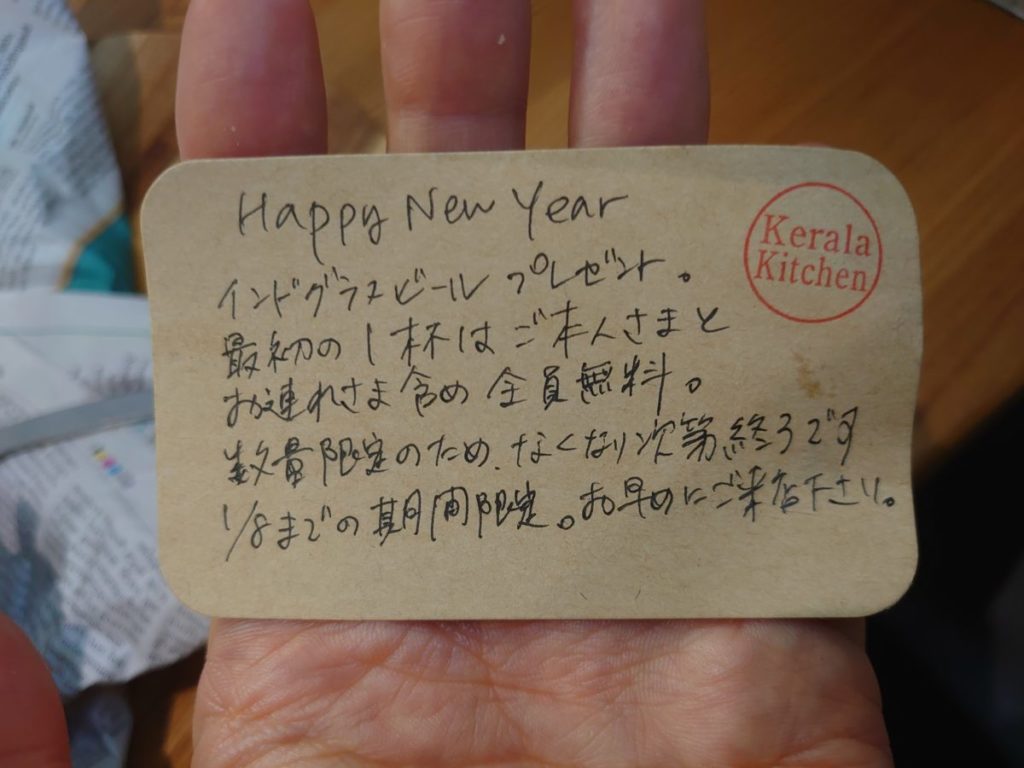 Happy New Year
Kerala
Kitchen
インドグラスビールプレゼント。
最初の1杯はご本人さまと
お連れさま含め全員無料。
数量限定のため、なくなり次第終了です
1/8までの期間限定。お早めにご来店下さい。